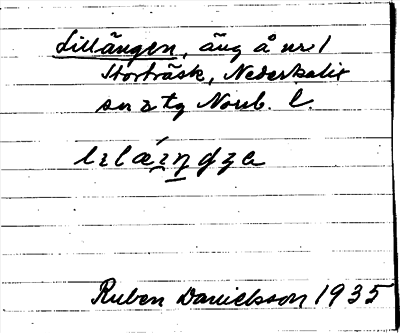 Lillängen, äng å nr 1
Storträsk, Nederkalix
sn o tg Norrb. l.
Ruben Danielsson 1935